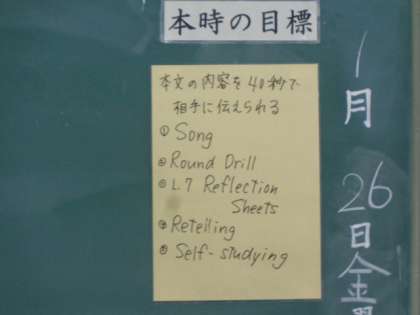 本時の目標
本文の内容を40秒で
相手に伝えられる
① Song
② Round Drill
③ L.7 Reflection
Sheets
④ Retelling
⑤ Self-studying
1月26日金曜